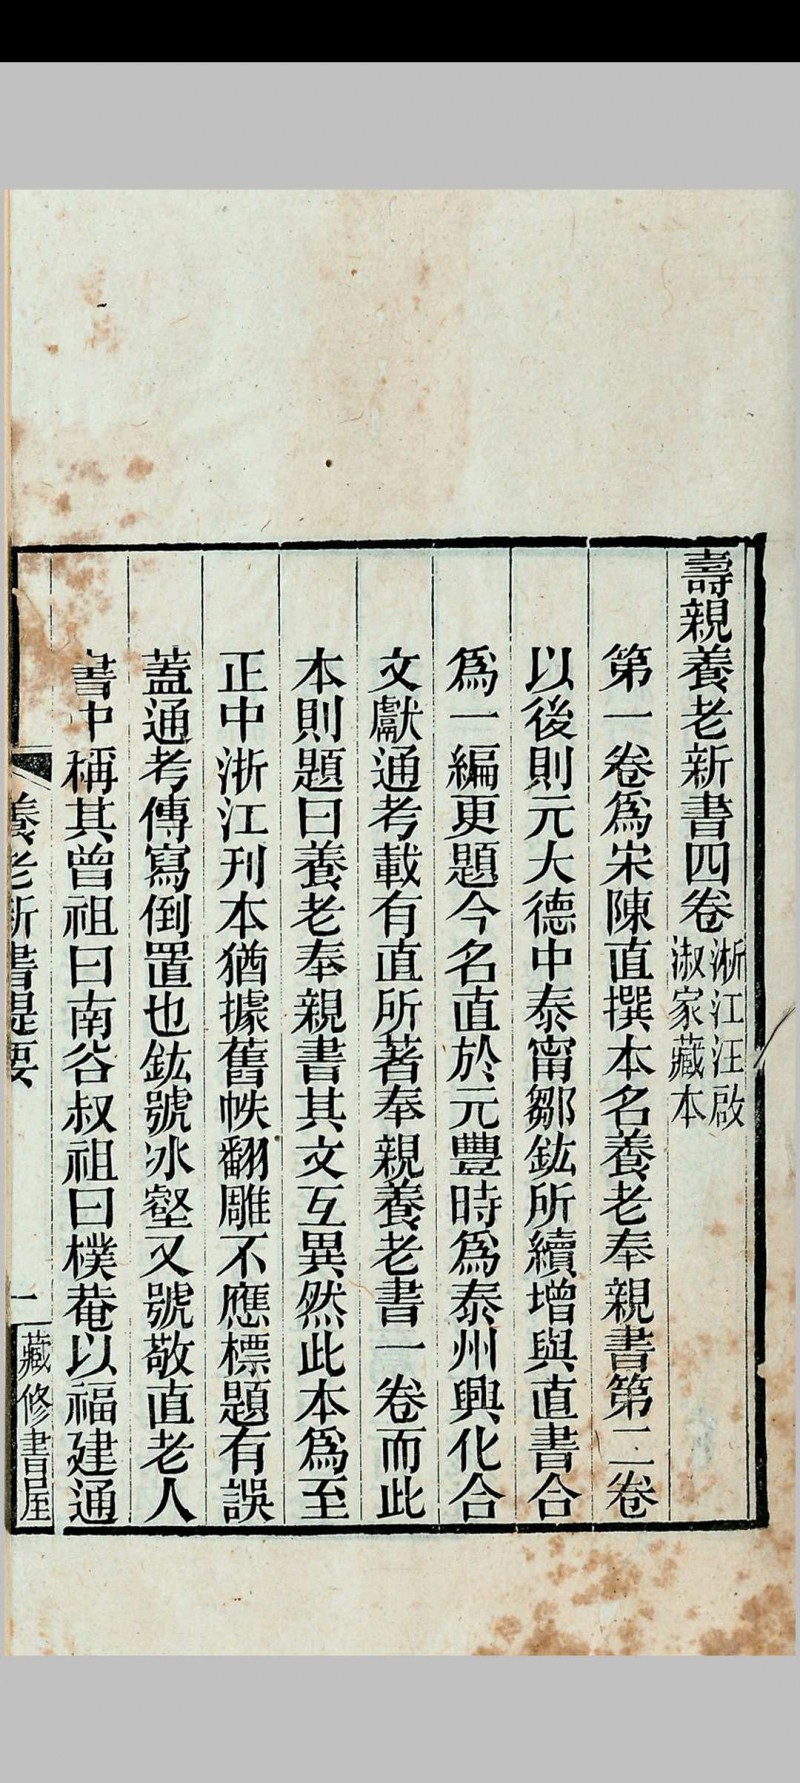 壽親養老新書四卷浙江汪啟
淑家藏本
第一卷爲宋陳直撰本名養老奉親書第二卷
以後則元大德中泰甯鄒鉉所續增與直書合
爲一編更題今名直於元豐時爲泰州興化合
文獻通考載有直所著奉親養老書一卷而此
本則題曰養老奉親書其文互異然此本爲至
正中浙江刊本猶據舊帙翻雕不應標題有誤
蓋通考傳寫倒置也鈜號冰壑又號敬直老人
書中稱其曾祖曰南谷叔祖曰樸菴以福建通
養老新書提要
一
藏修書屋